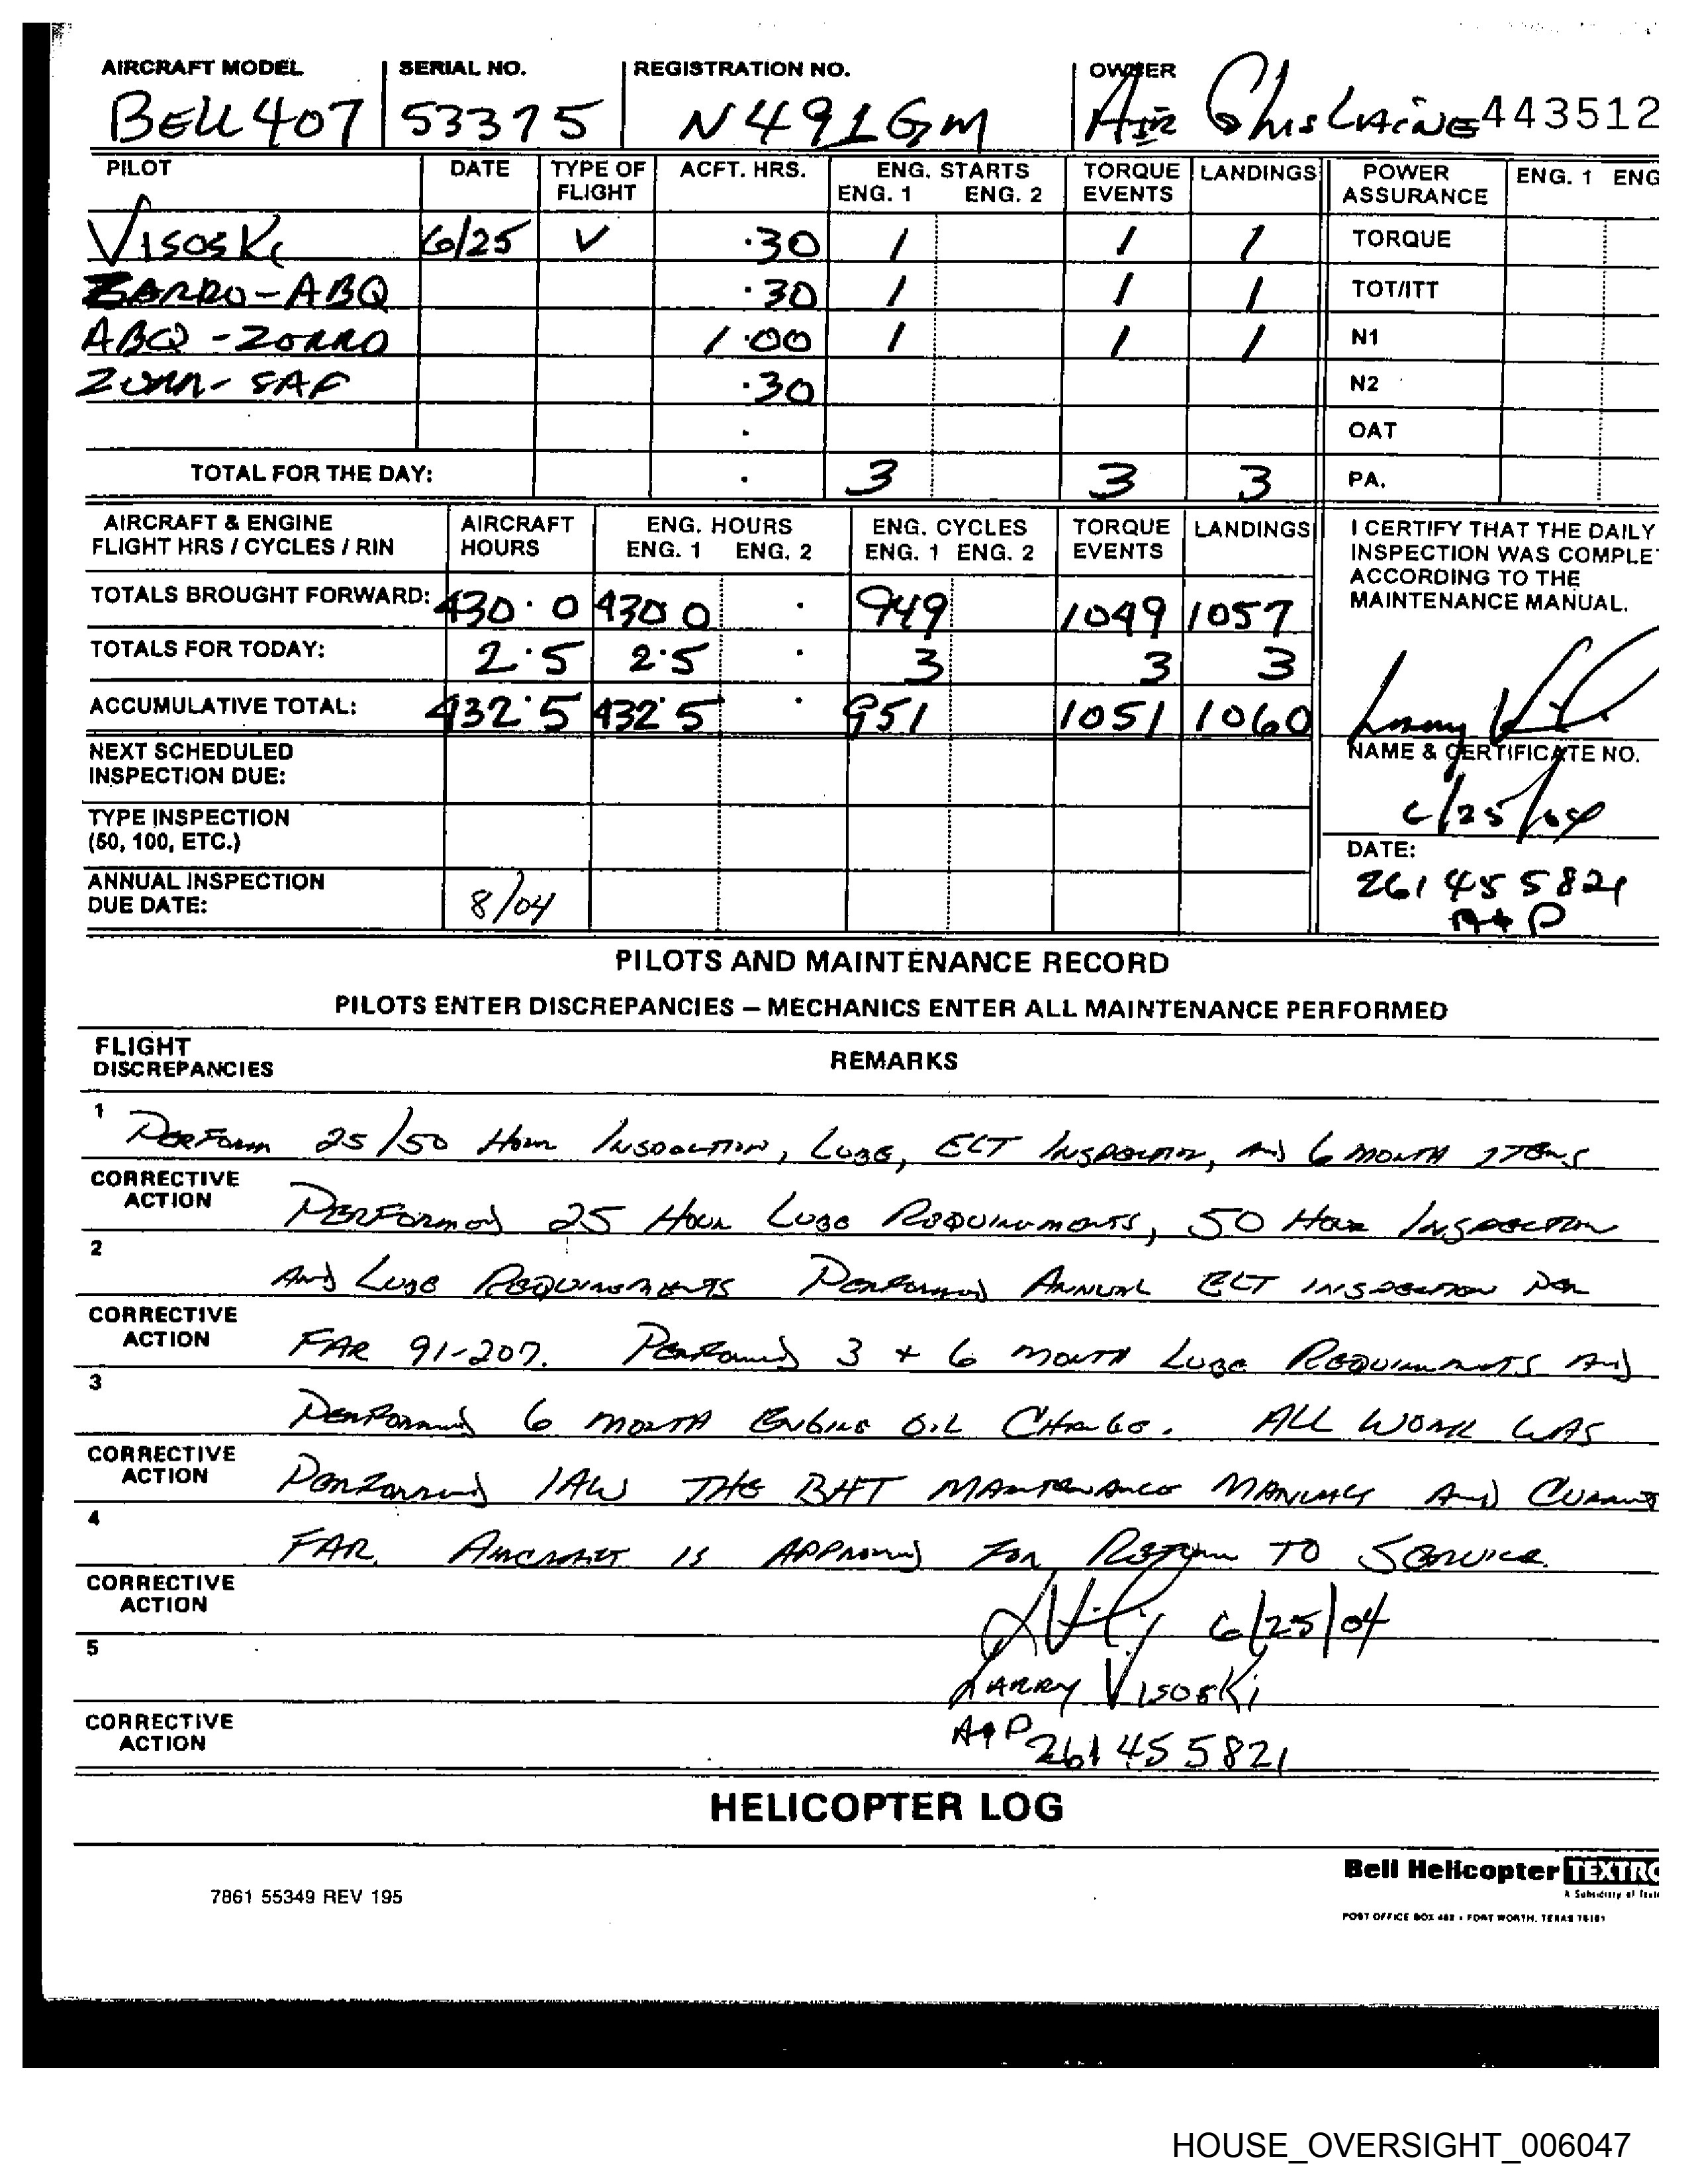 AIRCRAFT MODEL SERIAL NO. REGISTRATION NO. OWNER
BELL 407 53375 N491GM AIR GhisLAiNE 443512
PILOT DATE TYPE OF FLIGHT ACFT. HRS. ENG. STARTS ENG. 1 ENG. 2 TORQUE EVENTS LANDINGS POWER ASSURANCE ENG. 1 ENG
VISOSKi 6/25 V .30 1 1 1 TORQUE
ZORRO-ABQ .30 1 1 1 TOT/ITT
ABQ - ZORRO 1.00 1 1 1 N1
ZORR- SAF .30 N2
. OAT
TOTAL FOR THE DAY: . 3 3 3 PA.
AIRCRAFT & ENGINE FLIGHT HRS / CYCLES / RIN AIRCRAFT HOURS ENG. HOURS ENG. 1 ENG. 2 ENG. CYCLES ENG. 1 ENG. 2 TORQUE EVENTS LANDINGS
I CERTIFY THAT THE DAILY
INSPECTION WAS COMPLE
ACCORDING TO THE
MAINTENANCE MANUAL.
TOTALS BROUGHT FORWARD: 430.0 430 0 . 949 1049 1057
TOTALS FOR TODAY: 2.5 2.5 . 3 3 3
ACCUMULATIVE TOTAL: 432.5 432.5 . 951 1051 1060
NEXT SCHEDULED
INSPECTION DUE:
NAME & CERTIFICATE NO.
TYPE INSPECTION
(50, 100, ETC.)
6/25/04
DATE:
ANNUAL INSPECTION
DUE DATE: 8/04
261 45 5821
A+P
PILOTS AND MAINTENANCE RECORD
PILOTS ENTER DISCREPANCIES – MECHANICS ENTER ALL MAINTENANCE PERFORMED
FLIGHT
DISCREPANCIES REMARKS
1 PERFORM 25/50 HOUR INSPECTION, LUBE, ELT INSPECTION, AND 6 MONTH ITEMS
CORRECTIVE
ACTION PERFORMED 25 HOUR LUBE REQUIREMENTS, 50 HOUR INSPECTION
2 AND LUBE REQUIREMENTS PERFORMED ANNUAL ELT INSPECTION PER
CORRECTIVE
ACTION FAR 91-207. PERFORMED 3 + 6 MONTH LUBE REQUIREMENTS AND
3 PERFORMED 6 MONTH ENGINE OIL CHANGE. ALL WORK WAS
CORRECTIVE
ACTION PERFORMED IAW THE BHT MAINTENANCE MANUALS AND CURRENT
4 FAR. AIRCRAFT IS APPROVED FOR RETURN TO SERVICE.
CORRECTIVE
ACTION 6/25/04
5 LARRY VISOSKi
CORRECTIVE
ACTION A+P 261 45 5821
HELICOPTER LOG
Bell Helicopter TEXTRO
A Subsidiary of Text
7861 55349 REV 195
POST OFFICE BOX 482 • FORT WORTH, TEXAS 76101
HOUSE_OVERSIGHT_006047